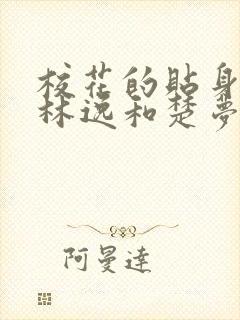 校花的贴身
林逸和楚梦
阿曼達